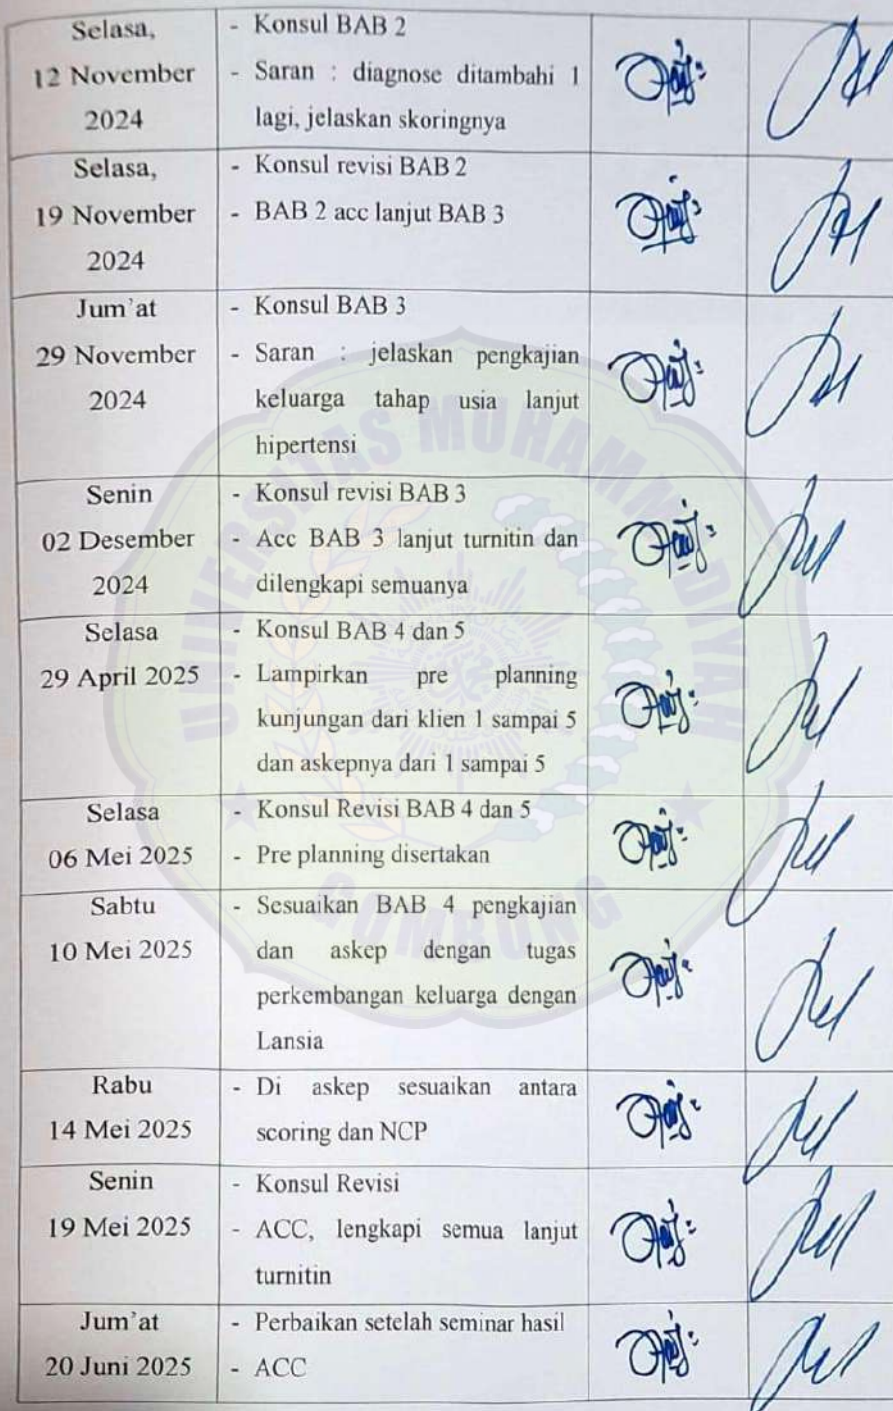 Selasa,
12 November
2024
- Konsul BAB 2
- Saran : diagnose ditambahi 1
lagi, jelaskan skoringnya
Selasa,
19 November
2024
- Konsul revisi BAB 2
- BAB 2 acc lanjut BAB 3
Jum'at
29 November
2024
- Konsul BAB 3
- Saran : jelaskan pengkajian
keluarga tahap usia lanjut
hipertensi
Senin
02 Desember
2024
- Konsul revisi BAB 3
- Acc BAB 3 lanjut turnitin dan
dilengkapi semuanya
Selasa
29 April 2025
- Konsul BAB 4 dan 5
- Lampirkan pre planning
kunjungan dari klien 1 sampai 5
dan askepnya dari 1 sampai 5
Selasa
06 Mei 2025
- Konsul Revisi BAB 4 dan 5
- Pre planning disertakan
Sabtu
10 Mei 2025
- Sesuaikan BAB 4 pengkajian
dan askep dengan tugas
perkembangan keluarga dengan
Lansia
Rabu
14 Mei 2025
- Di askep sesuaikan antara
scoring dan NCP
Senin
19 Mei 2025
- Konsul Revisi
- ACC, lengkapi semua lanjut
turnitin
Jum'at
20 Juni 2025
- Perbaikan setelah seminar hasil
- ACC
UNIVERSITAS MUHAMMADIYAH
GOMBONG